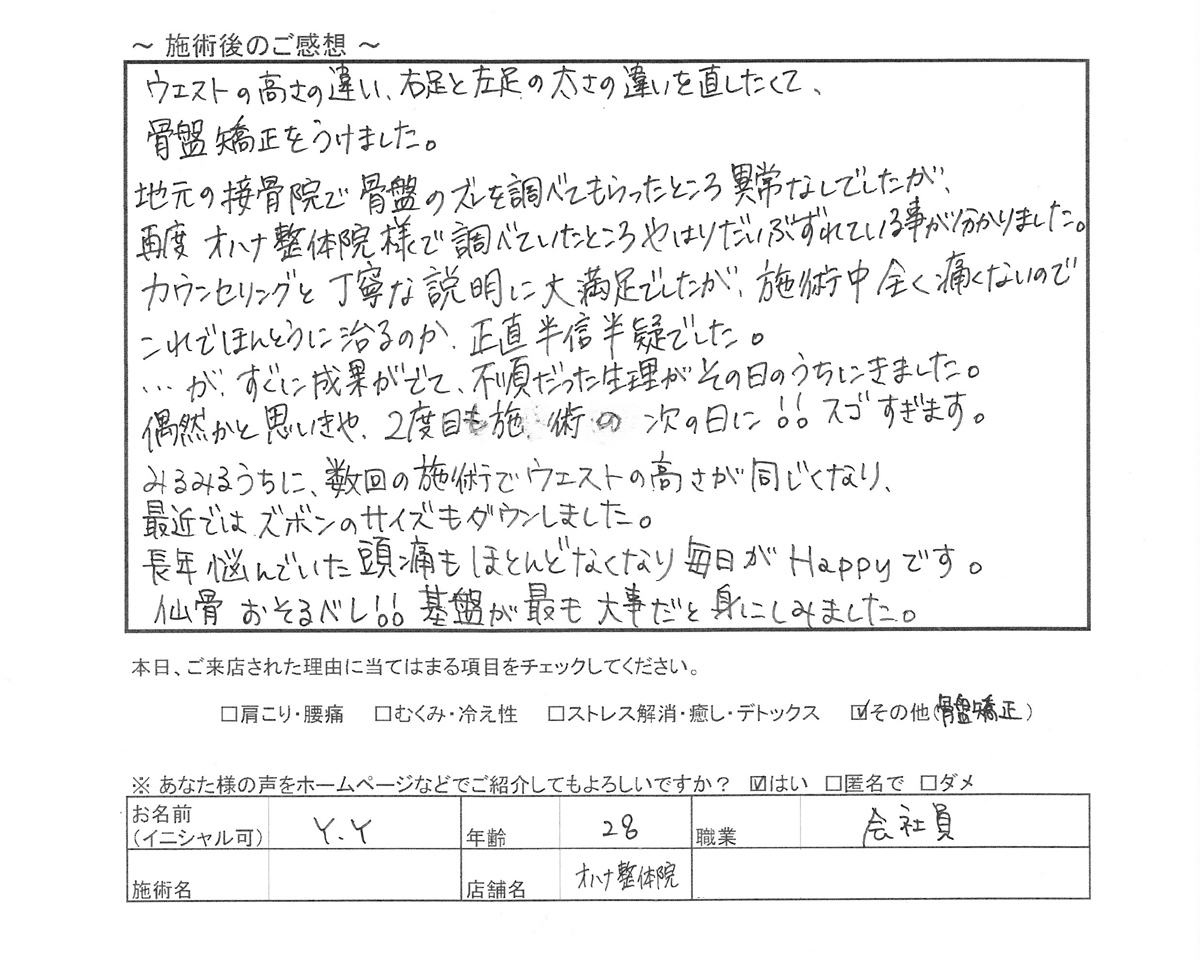 ～ 施術後のご感想 ～
ウエストの高さの違い、右足と左足の太さの違いを直したくて、
骨盤矯正をうけました。
地元の接骨院で骨盤のズレを調べてもらったところ異常なしでしたが、
再度オハナ整体院様で調べていたところやはりだいぶずれている事が分かりました。
カウンセリングと丁寧な説明に大満足でしたが、施術中全く痛くないので
これでほんとうに治るのか、正直半信半疑でした。
…が、すぐに成果がでて、不順だった生理がその日のうちにきました。
偶然かと思いきや、2度目も施術の次の日に!! スゴすぎます。
みるみるうちに、数回の施術でウエストの高さが同じくなり、
最近ではズボンのサイズもダウンしました。
長年悩んでいた頭痛もほとんどなくなり毎日がHappyです。
仙骨おそるベし!! 基盤が最も大事だと身にしみました。
本日、ご来店された理由に当てはまる項目をチェックしてください。
□肩こり・腰痛 □むくみ・冷え性 □ストレス解消・癒し・デトックス ☑その他(骨盤矯正)
※ あなた様の声をホームページなどでご紹介してもよろしいですか？ ☑はい □匿名で □ダメ
お名前
(イニシャル可) Y.Y 年齢 28 職業 会社員
施術名 店舗名 オハナ整体院